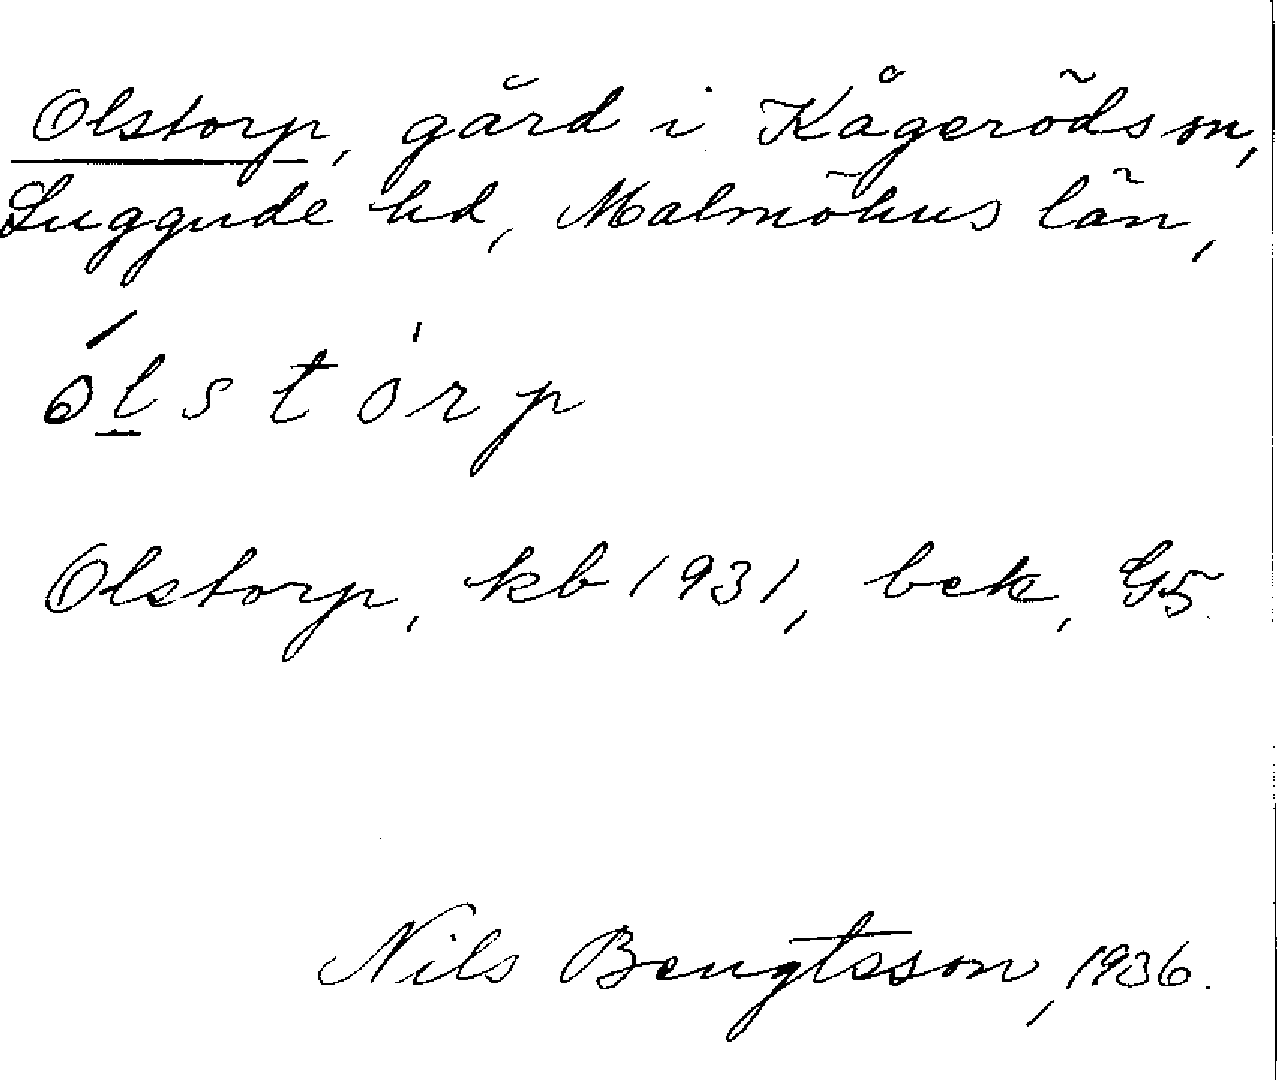 Olstorp, gård i Kågeröds sn,
Luggude hd, Malmöhus län,
ólstòrp
Olstorp, kb 1931, bek, G5.
Nils Bengtsson, 1936.